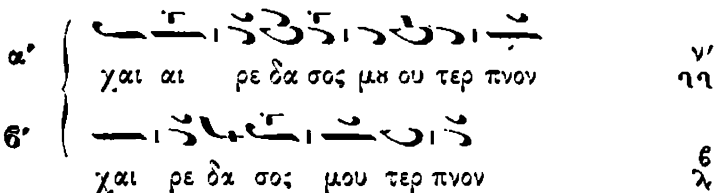 α′
χαι αι ρε δα σος μȣ ου τερ πνον
ϐ′
χαι ρε δα σος μου τερ πνον